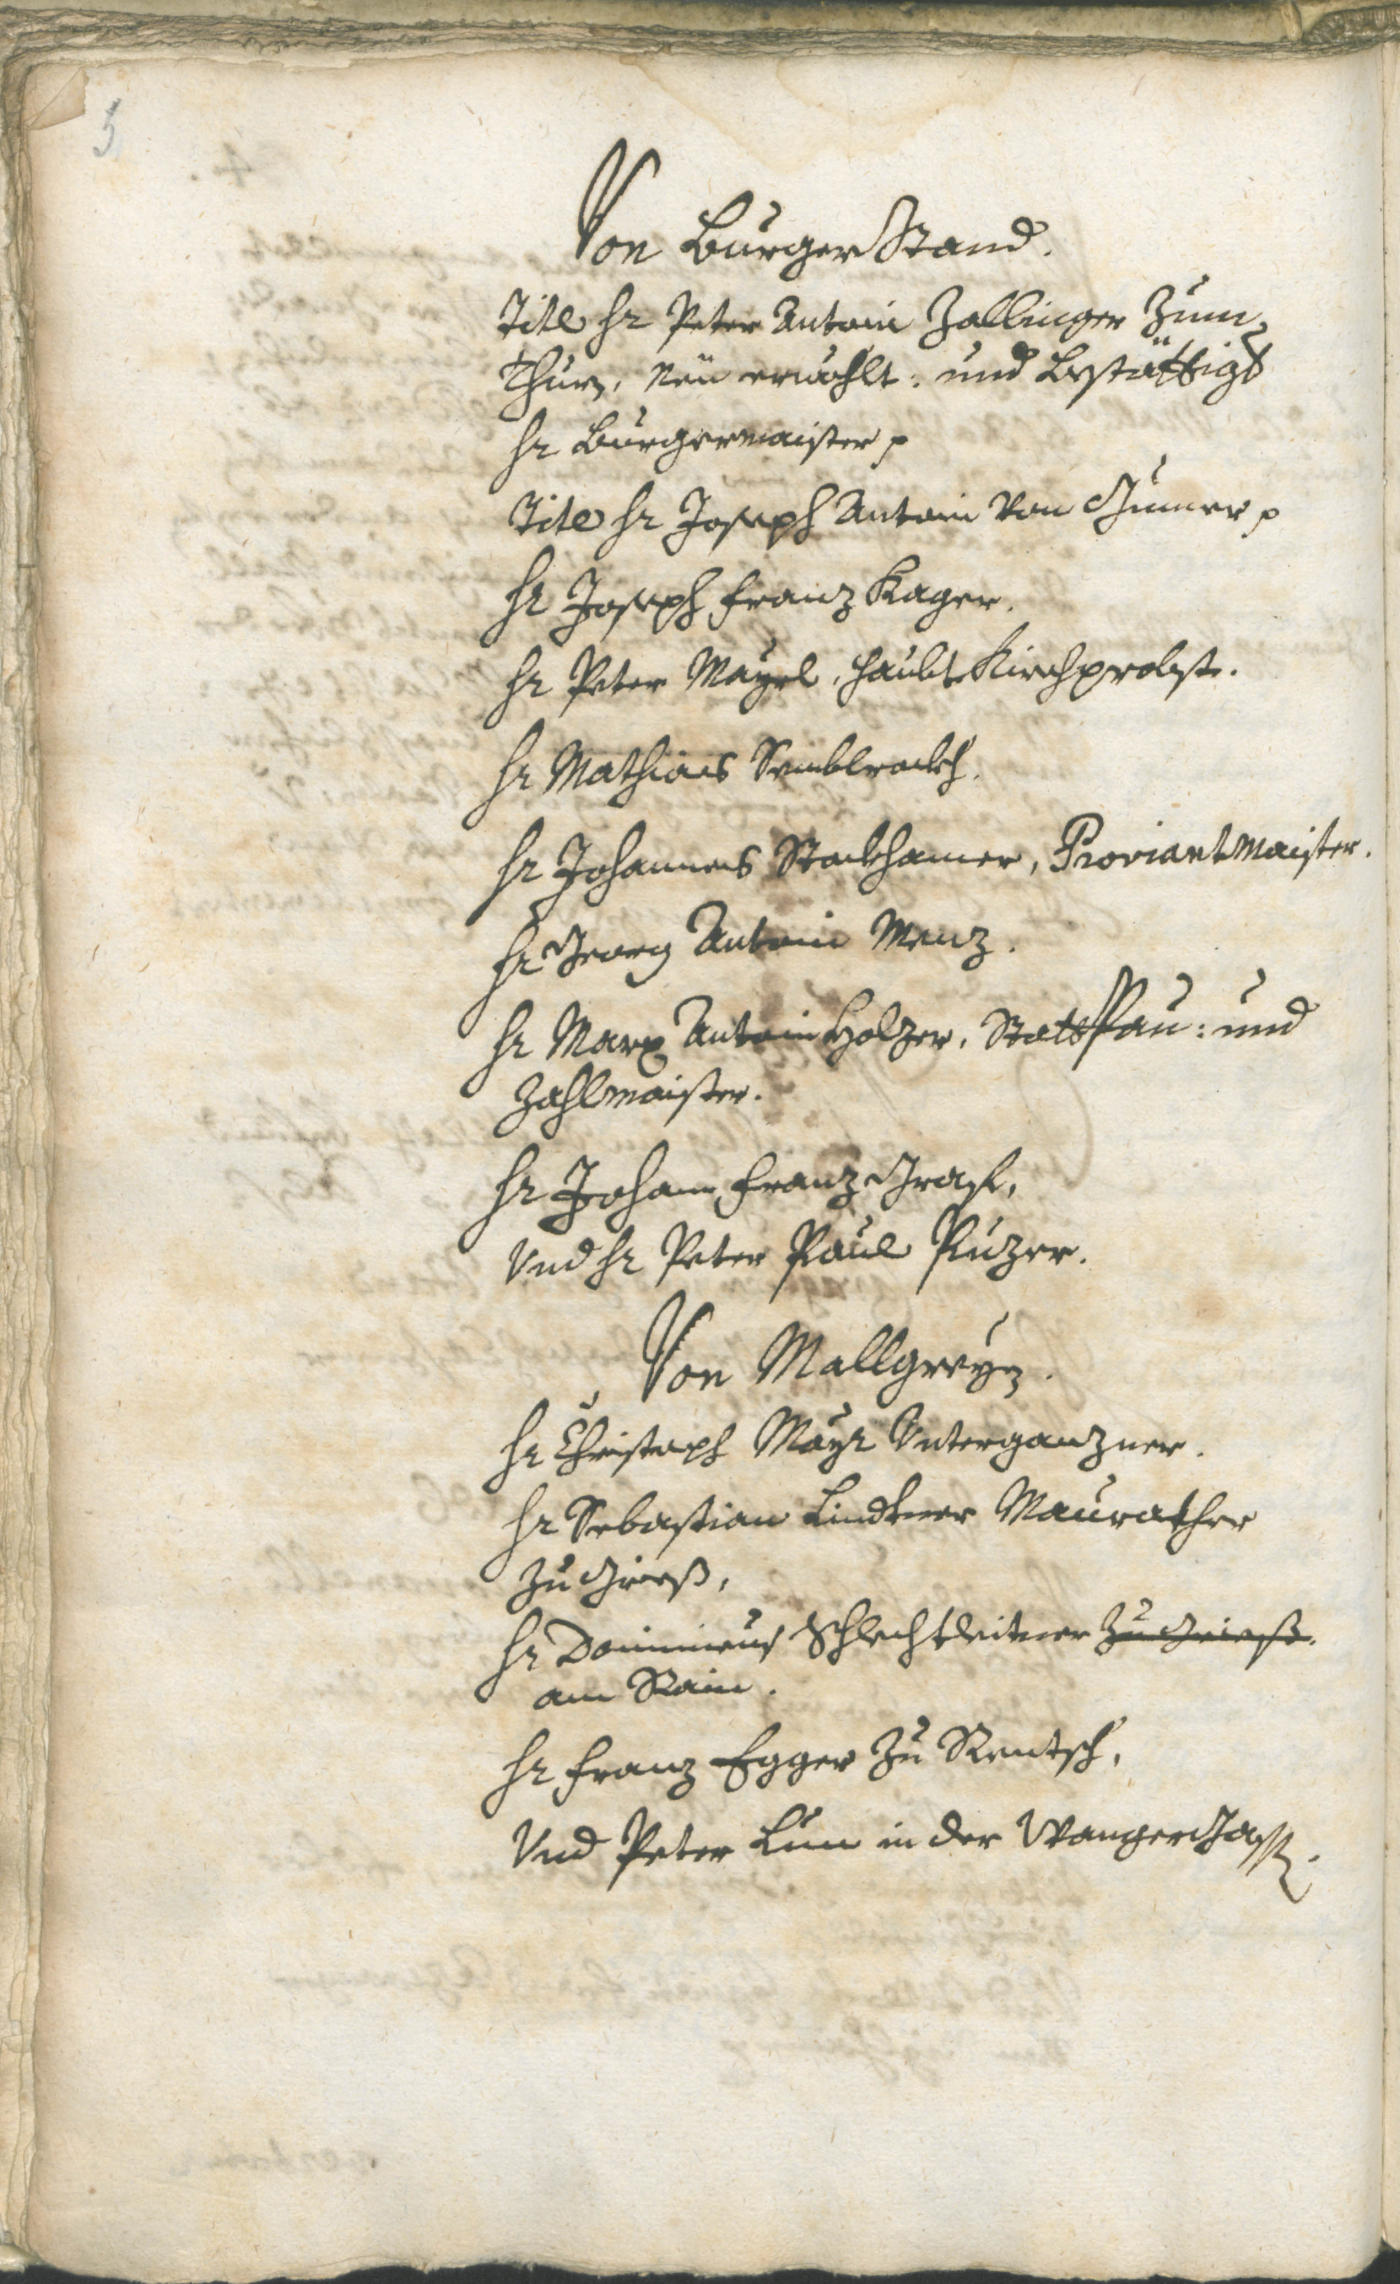 5
Von Burger Stand.
Titl Hr Peter Antoni Zallinger Zum
Thurn, Neü erwöhlt: und Bestättigt
Hr Burgermaister p
Titl Hr Joseph Antoni von Gumer p
Hr Joseph Franz Kager.
Hr Peter Mayrl, haubt Kirchprobst.
Hr Mathias Semblrockh.
Hr Johannes Stockhamer, Proviantmaister.
Hr Georg Antoni Menz.
Hr Marx Antoni Holzer, Statt Pau: und
Zahlmaister.
Hr Johann Franz Grasl,
Und Hr Peter Paul Puzer.
Von Mallgreÿen.
Hr Christoph Maÿr Unterganzner.
Hr Sebastian Lindtner Maurather
zu Grieß,
Hr Dominicus Schlechtleitner zu Grieß.
am Rain.
Hr Franz Egger zu Rentsch,
Und Peter Lun in der Wanger Gassen.